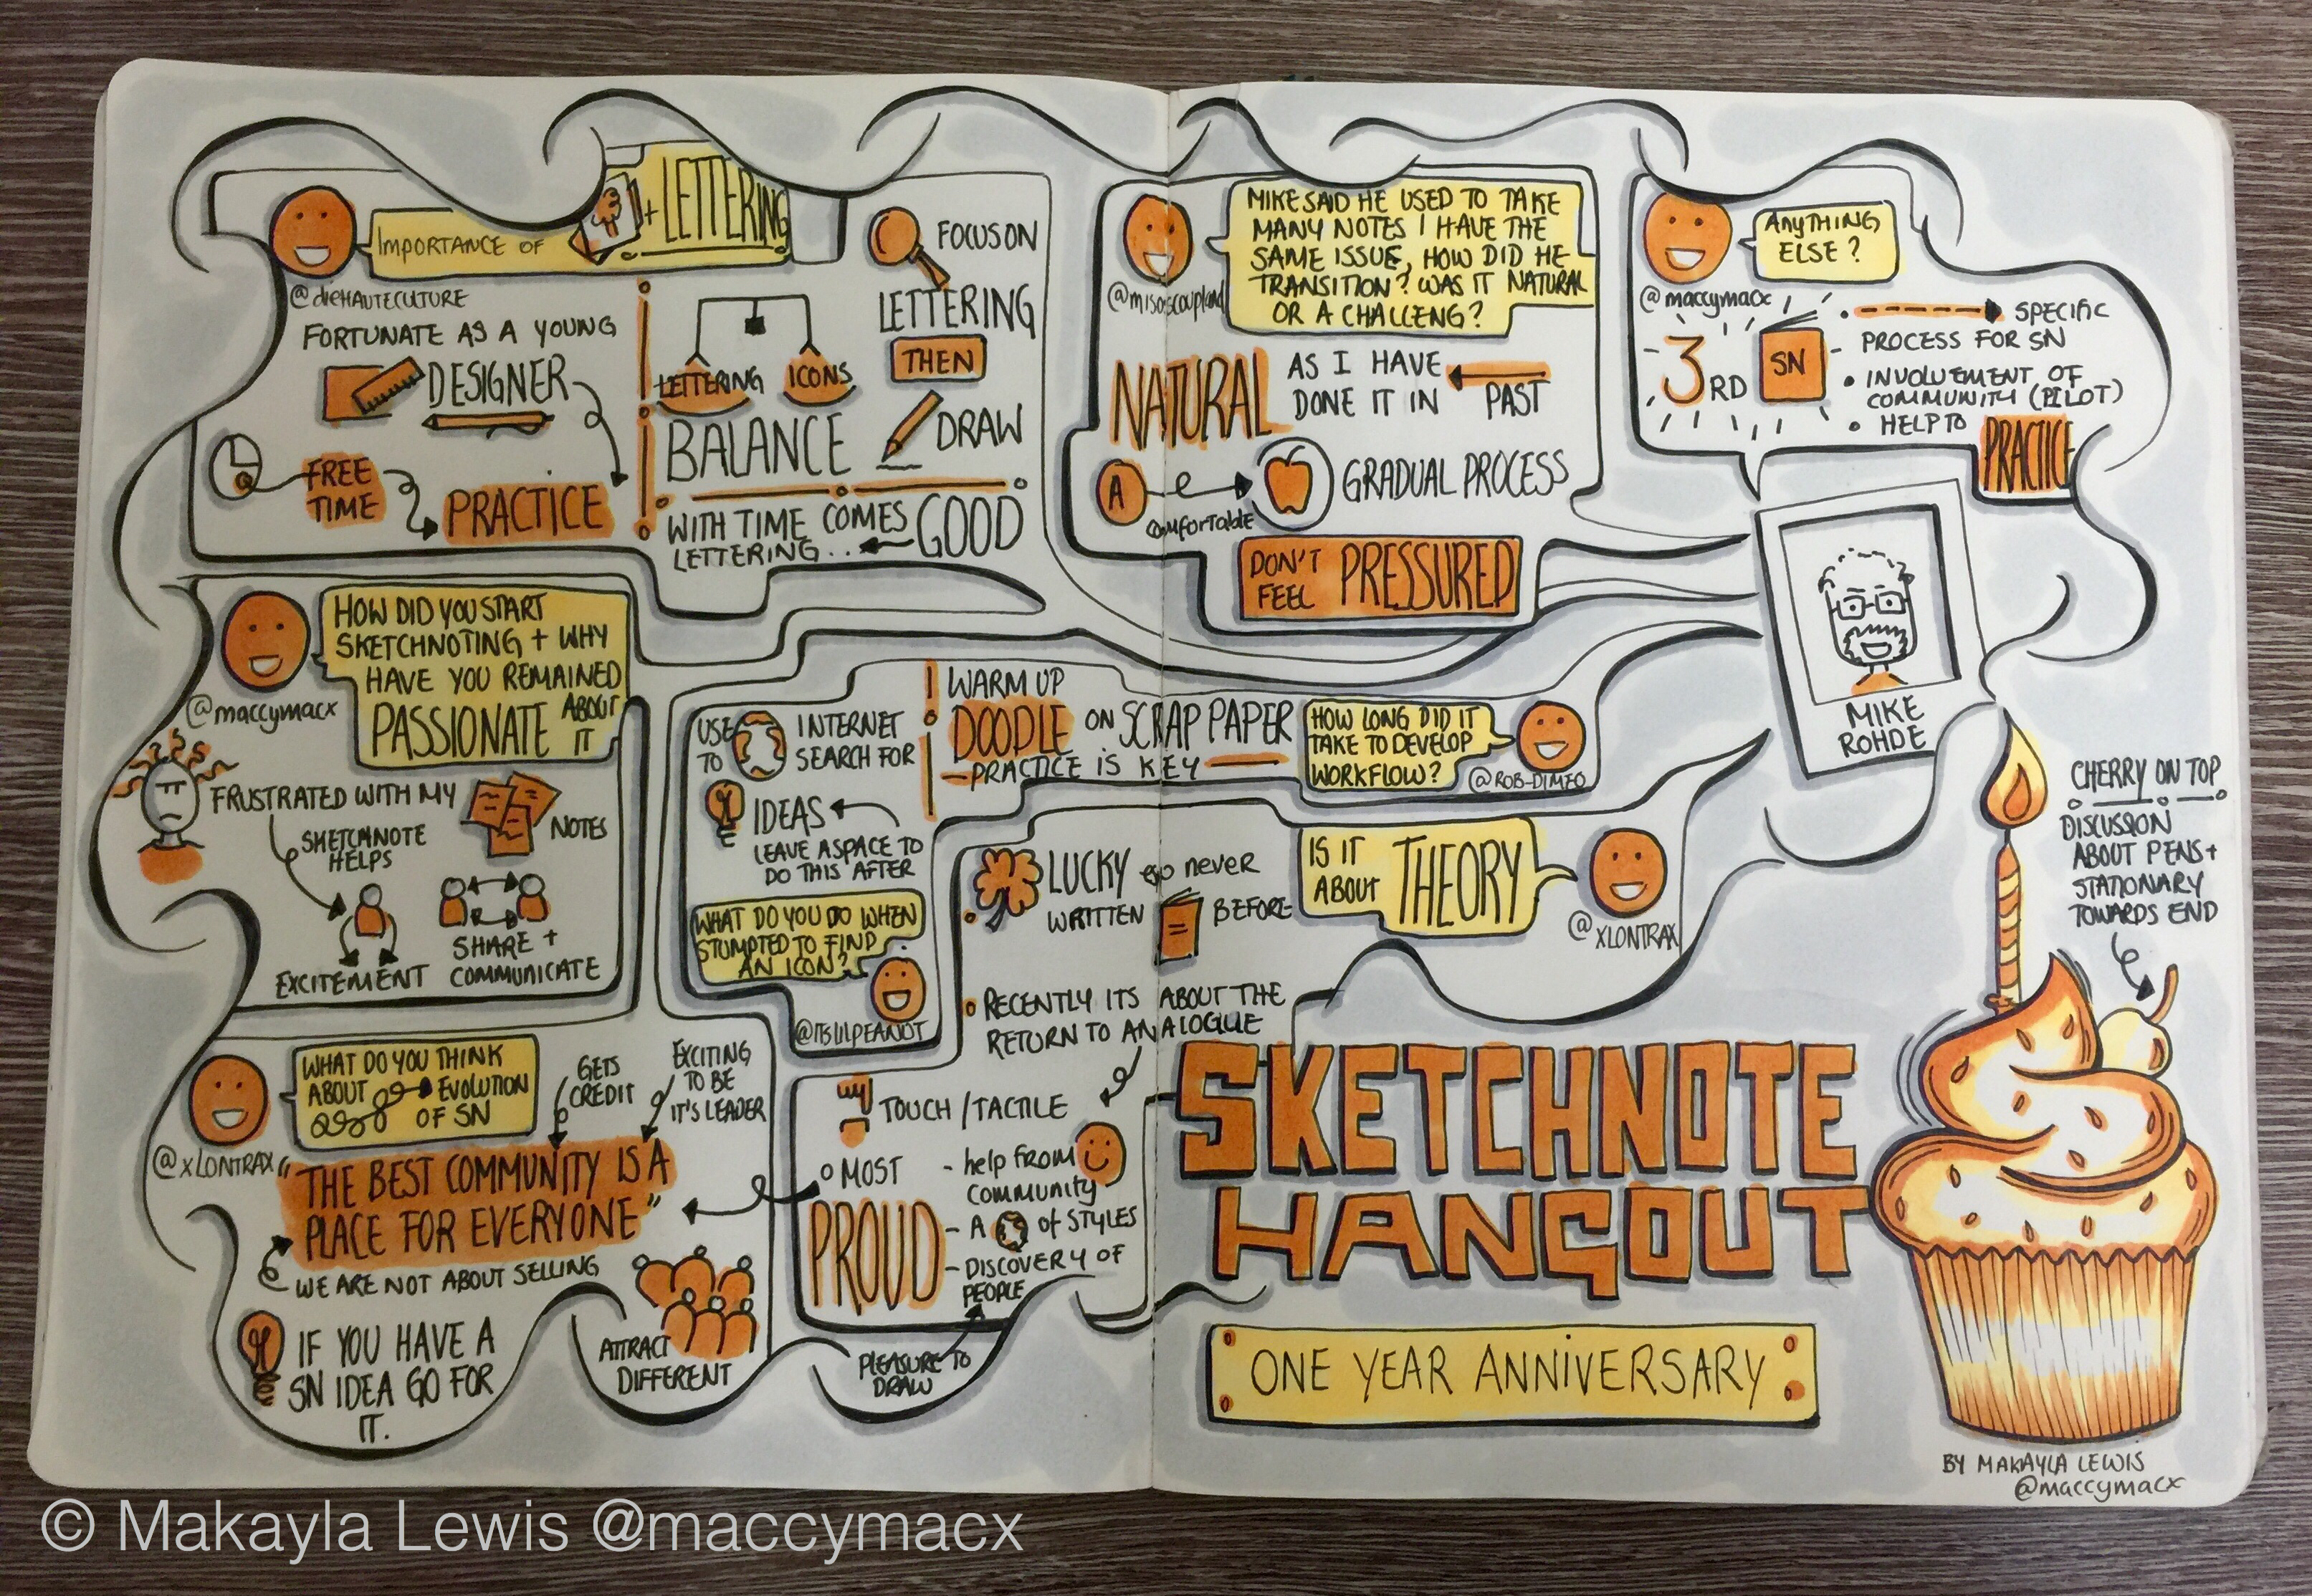 IMPORTANCE OF
+ LETTERING
@dieHAUTECULTURE
FORTUNATE AS A YOUNG
DESIGNER
FREE
TIME
PRACTICE
LETTERING
ICONS
BALANCE
FOCUS ON
LETTERING
THEN
DRAW
WITH TIME COMES
LETTERING... GOOD
MIKE SAID HE USED TO TAKE
MANY NOTES I HAVE THE
SAME ISSUE, HOW DID HE
TRANSITION? WAS IT NATURAL
OR A CHALLENG?
NATURAL
AS I HAVE
DONE IT IN
PAST
A
comfortable
GRADUAL PROCESS
DON'T
FEEL
PRESSURED
ANYTHING
ELSE?
@maccymacx
3RD
SN
• SPECIFIC
PROCESS FOR SN
• INVOLVEMENT OF
COMMUNITY (PILOT)
• HELP TO
PRACTICE
MIKE
ROHDE
HOW DID YOU START
SKETCHNOTING + WHY
HAVE YOU REMAINED
PASSIONATE ABOUT
IT
@maccymacx
FRUSTRATED WITH MY
NOTES
SKETCHNOTE
HELPS
EXCITEMENT
SHARE +
COMMUNICATE
USE
TO
INTERNET
SEARCH FOR
IDEAS
LEAVE A SPACE TO
DO THIS AFTER
WHAT DO YOU DO WHEN
STUMPTED TO FIND
AN ICON?
@ITSLILPEANUT
WARM UP
DOODLE ON SCRAP PAPER
PRACTICE IS KEY
HOW LONG DID IT
TAKE TO DEVELOP
WORKFLOW?
@ROB-DIMEO
LUCKY never
WRITTEN
BEFORE
IS IT
ABOUT
THEORY
@XLONTRAX
RECENTLY ITS ABOUT THE
RETURN TO ANALOGUE
TOUCH/TACTILE
MOST
PROUD
- help from
community
- A of STYLES
- DISCOVERY OF
PEOPLE
PLEASURE TO
DRAW
WHAT DO YOU THINK
ABOUT EVOLUTION
OF SN
@XLONTRAX
GETS
CREDIT
EXCITING
TO BE
IT'S LEADER
"THE BEST COMMUNITY IS A
PLACE FOR EVERYONE"
WE ARE NOT ABOUT SELLING
IF YOU HAVE A
SN IDEA GO FOR
IT.
ATTRACT
DIFFERENT
SKETCHNOTE
HANGOUT
ONE YEAR ANNIVERSARY
CHERRY ON TOP
DISCUSSION
ABOUT PENS +
STATIONARY
TOWARDS END
BY MAKAYLA LEWIS
@maccymacx
© Makayla Lewis @maccymacx